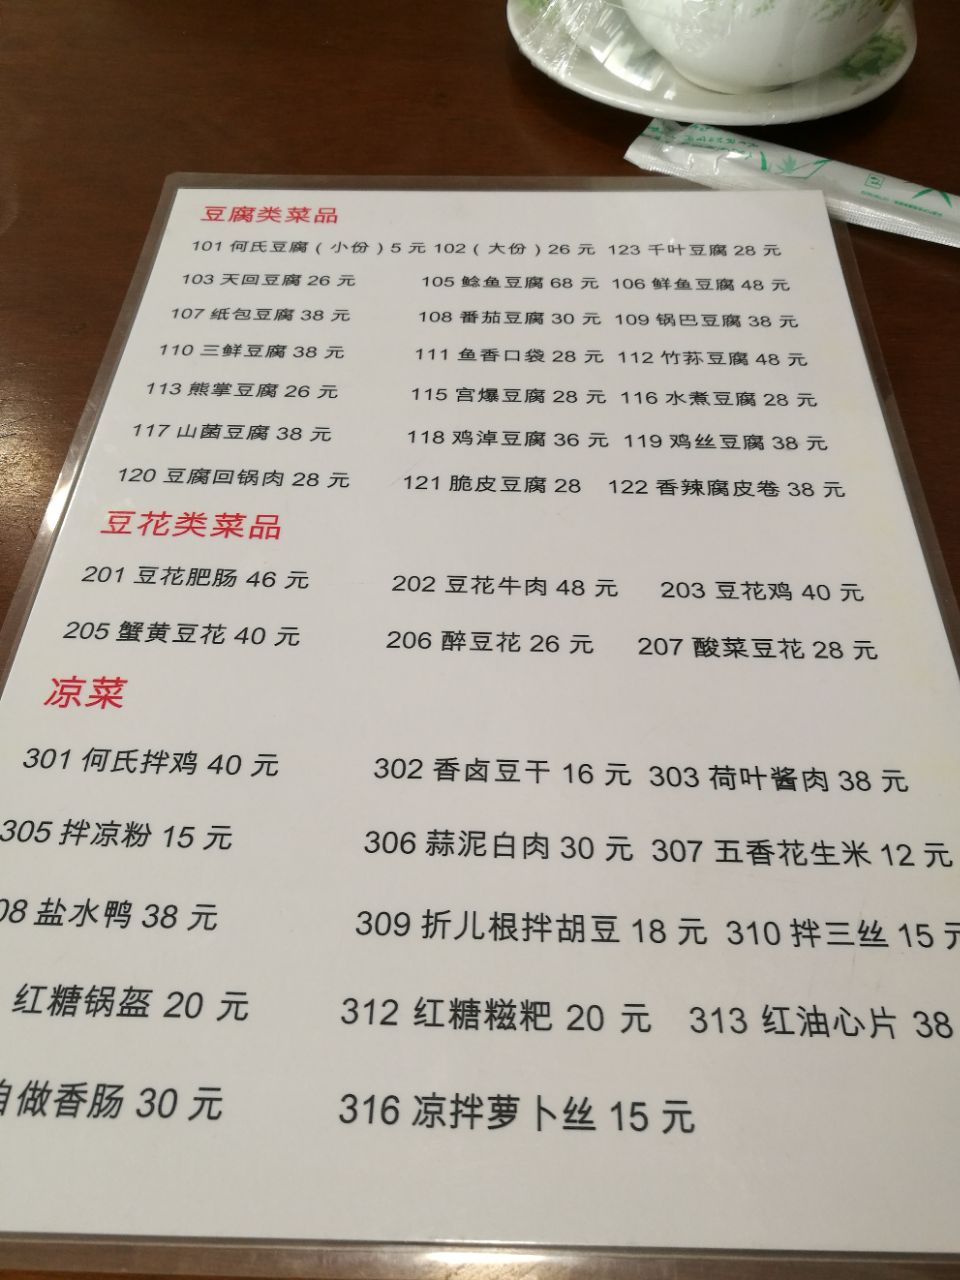 豆腐类菜品
101 何氏豆腐（小份）5 元 102（大份）26 元 123 千叶豆腐 28 元
103 天回豆腐 26 元 105 鲶鱼豆腐 68 元 106 鲜鱼豆腐 48 元
107 纸包豆腐 38 元 108 番茄豆腐 30 元 109 锅巴豆腐 38 元
110 三鲜豆腐 38 元 111 鱼香口袋 28 元 112 竹荪豆腐 48 元
113 熊掌豆腐 26 元 115 宫爆豆腐 28 元 116 水煮豆腐 28 元
117 山菌豆腐 38 元 118 鸡淖豆腐 36 元 119 鸡丝豆腐 38 元
120 豆腐回锅肉 28 元 121 脆皮豆腐 28 122 香辣腐皮卷 38 元
豆花类菜品
201 豆花肥肠 46 元 202 豆花牛肉 48 元 203 豆花鸡 40 元
205 蟹黄豆花 40 元 206 醉豆花 26 元 207 酸菜豆花 28 元
凉菜
301 何氏拌鸡 40 元 302 香卤豆干 16 元 303 荷叶酱肉 38 元
305 拌凉粉 15 元 306 蒜泥白肉 30 元 307 五香花生米 12 元
08 盐水鸭 38 元 309 折儿根拌胡豆 18 元 310 拌三丝 15 元
红糖锅盔 20 元 312 红糖糍粑 20 元 313 红油心片 38
自做香肠 30 元 316 凉拌萝卜丝 15 元